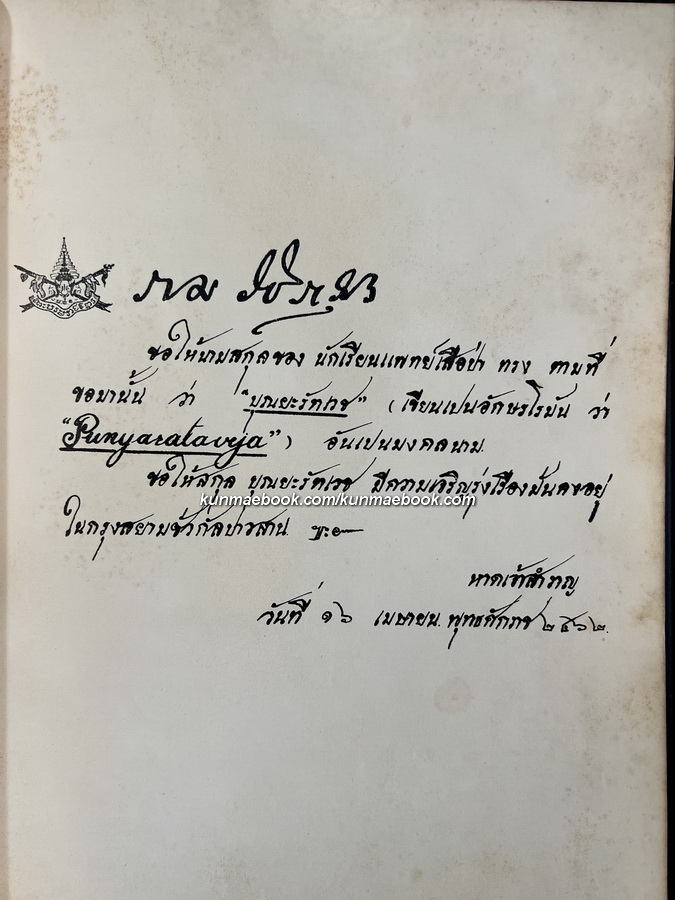 ราม วชิราวุธ
ขอให้นามสกุลของ นักเรียนแพทย์เสือป่า ทรง ตามที่
ขอมานั้น ว่า "บุณยะรัตเวช" (เขียนเปนอักษรโรมัน ว่า
"Punyaratavėja") อันเปนมงคลนาม.
ขอให้สกุล บุณยะรัตเวช มีความเจริญรุ่งเรืองมั่นคงอยู่
kunmaebook.com/kunmaebook.com
ในกรุงสยามชั่วกัลปาวสาน.
หาดเจ้าสำราญ
วันที่ ๑๖ เมษายน. พุทธศักราช ๒๔๖๒.